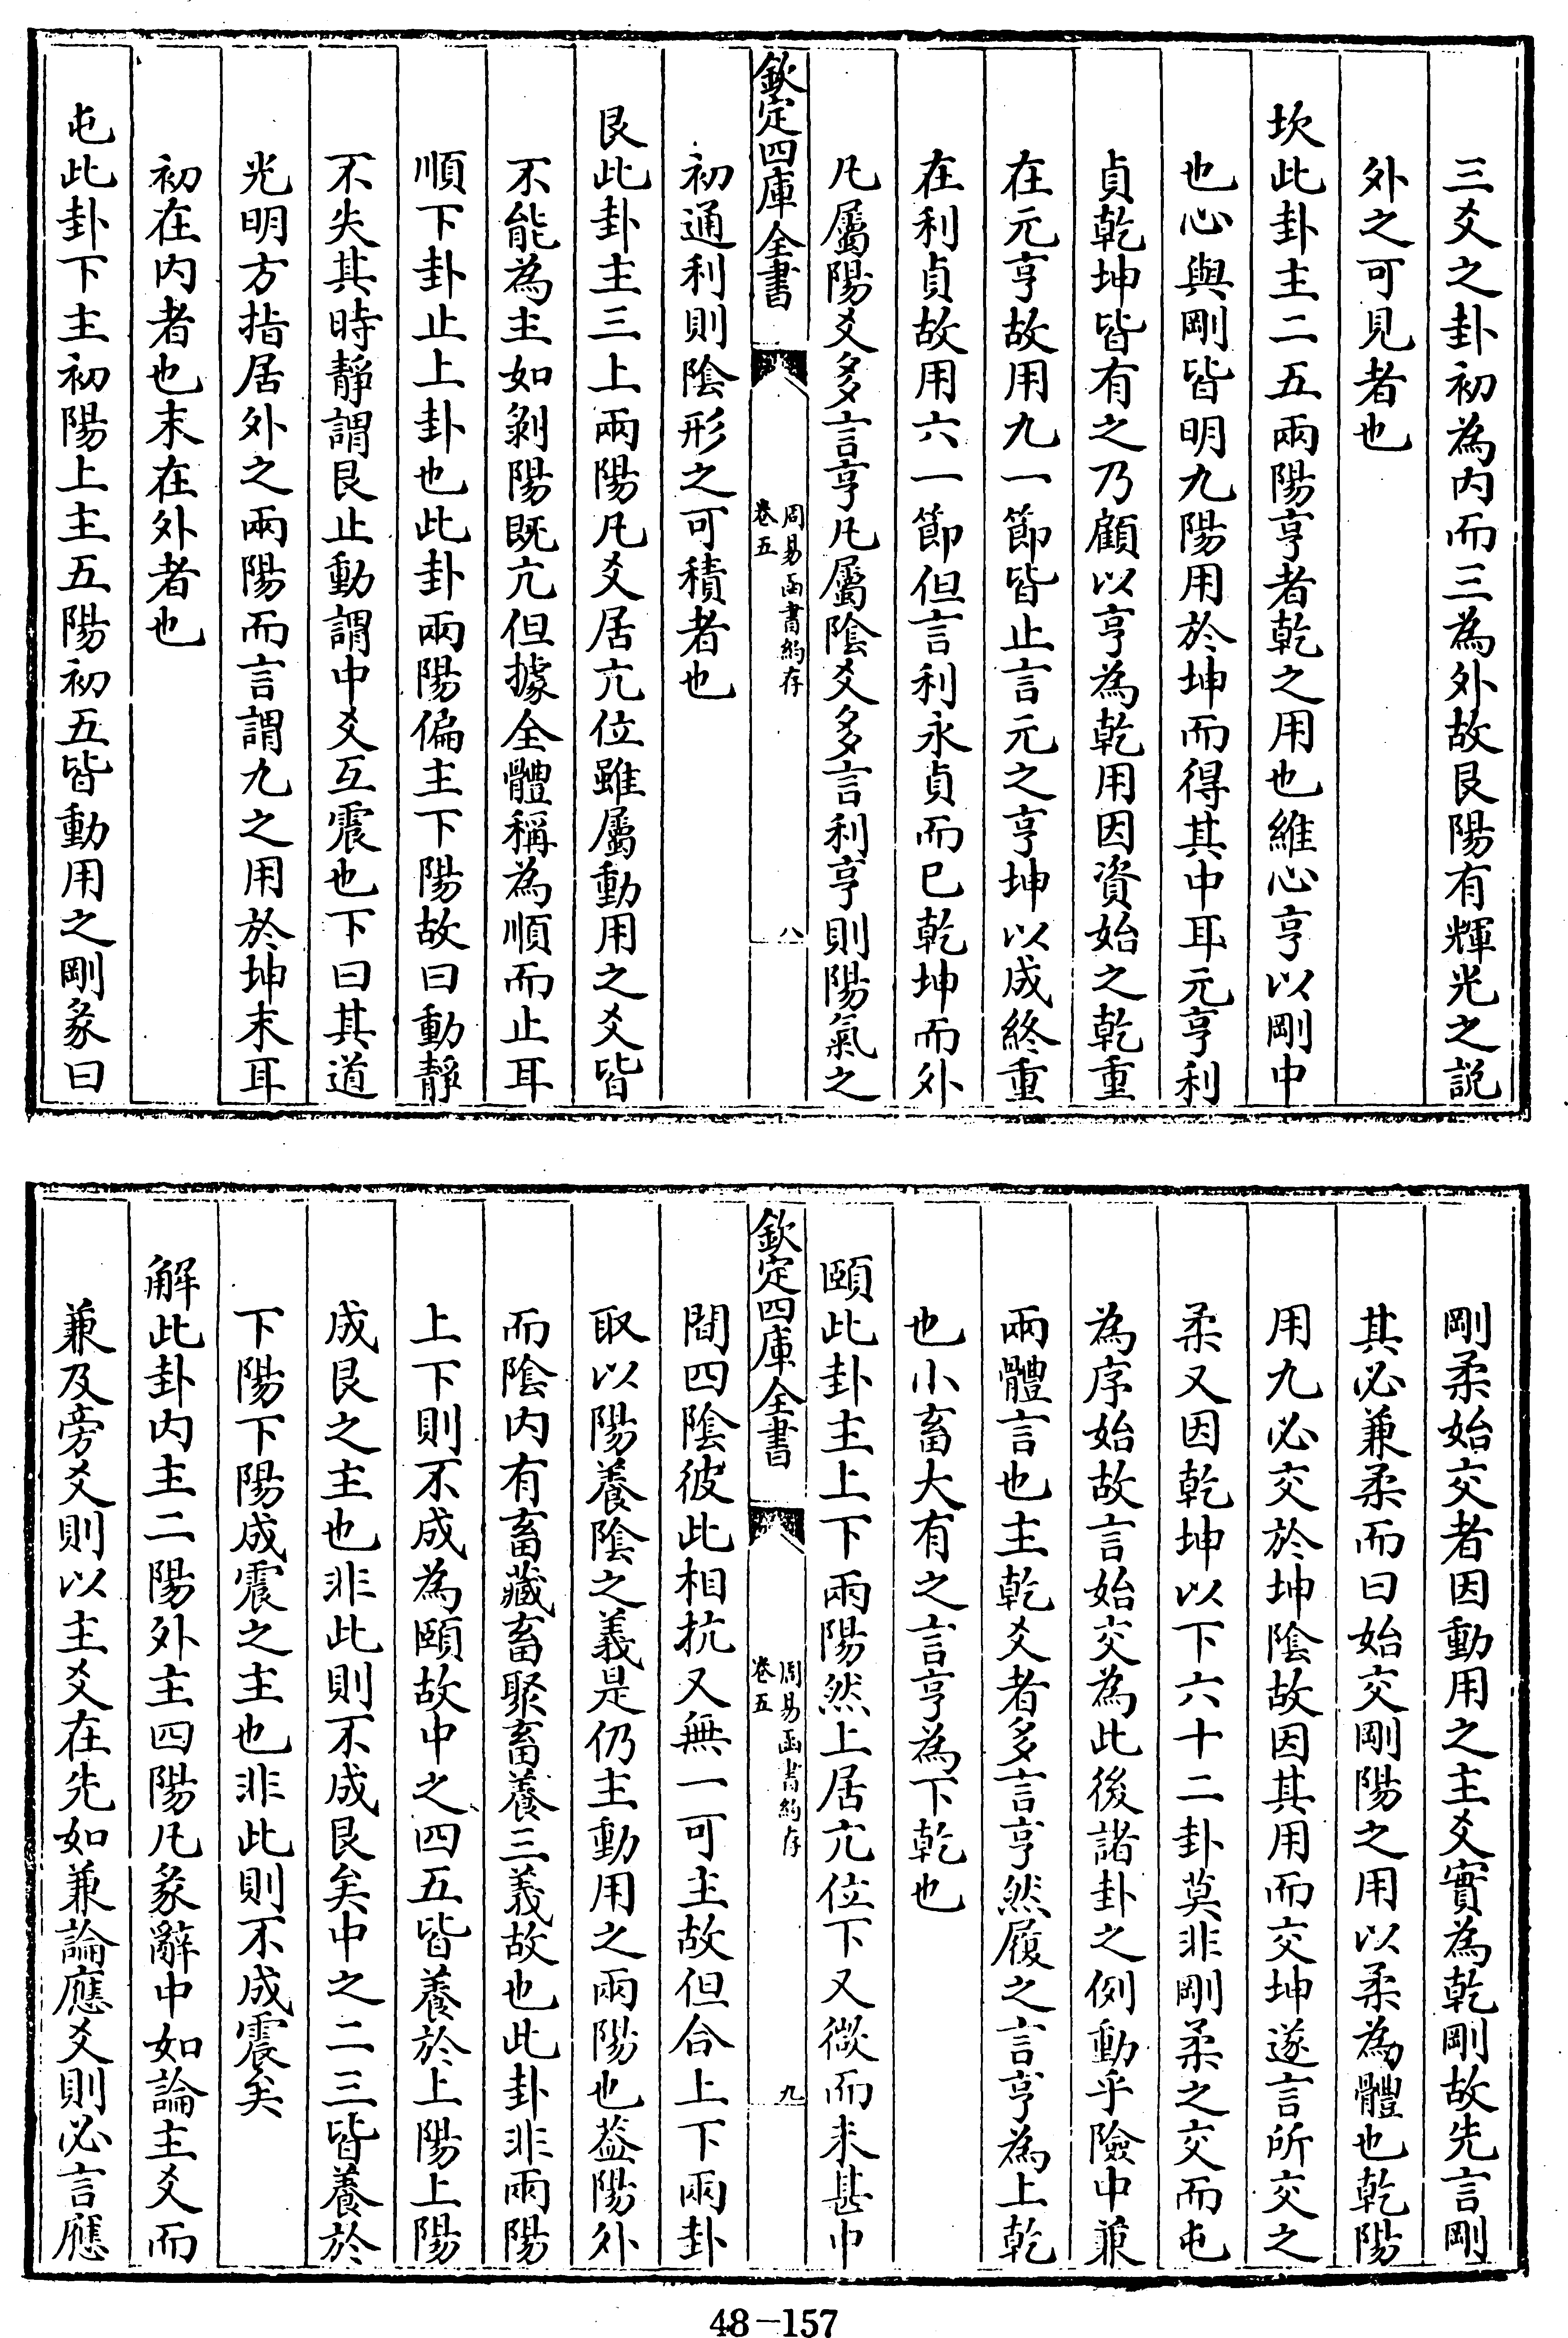 三爻之卦初為内而三為外故艮陽有輝光之説
外之可見者也
坎此卦主二五兩陽亨者乾之用也維心亨以剛中
也心與剛皆明九陽用於坤而得其中耳元亨利
貞乾坤皆有之乃顧以亨為乾用因資始之乾重
在元亨故用九一節皆止言元之亨坤以成終重
在利貞故用六一節但言利永貞而已乾坤而外
凡屬陽爻多言亨凡屬陰爻多言利亨則陽氣之
欽定四庫全書
周易函書約存
卷五
八
初通利則陰形之可積者也
艮此卦主三上兩陽凡爻居亢位雖屬動用之爻皆
不能為主如剝陽既亢但據全體稱為順而止耳
順下卦止上卦也此卦兩陽偏主下陽故曰動靜
不失其時靜謂艮止動謂中爻互震也下曰其道
光明方指居外之兩陽而言謂九之用於坤末耳
初在内者也末在外者也
屯此卦下主初陽上主五陽初五皆動用之剛彖曰
剛柔始交者因動用之主爻實為乾剛故先言剛
其必兼柔而曰始交剛陽之用以柔為體也乾陽
用九必交於坤陰故因其用而交坤遂言所交之
柔又因乾坤以下六十二卦莫非剛柔之交而屯
為序始故言始交為此後諸卦之例動乎險中兼
兩體言也主乾爻者多言亨然履之言亨為上乾
也小畜大有之言亨為下乾也
頤此卦主上下兩陽然上居亢位下又微而未甚中
欽定四庫全書
周易函書約存
卷五
九
間四陰彼此相抗又無一可主故但合上下兩卦
取以陽養陰之義是仍主動用之兩陽也葢陽外
而陰内有畜藏畜聚畜養三義故也此卦非兩陽
上下則不成為頤故中之四五皆養於上陽上陽
成艮之主也非此則不成艮矣中之二三皆養於
下陽下陽成震之主也非此則不成震矣
解此卦内主二陽外主四陽凡彖辭中如論主爻而
兼及旁爻則以主爻在先如兼論應爻則必言應
48-157